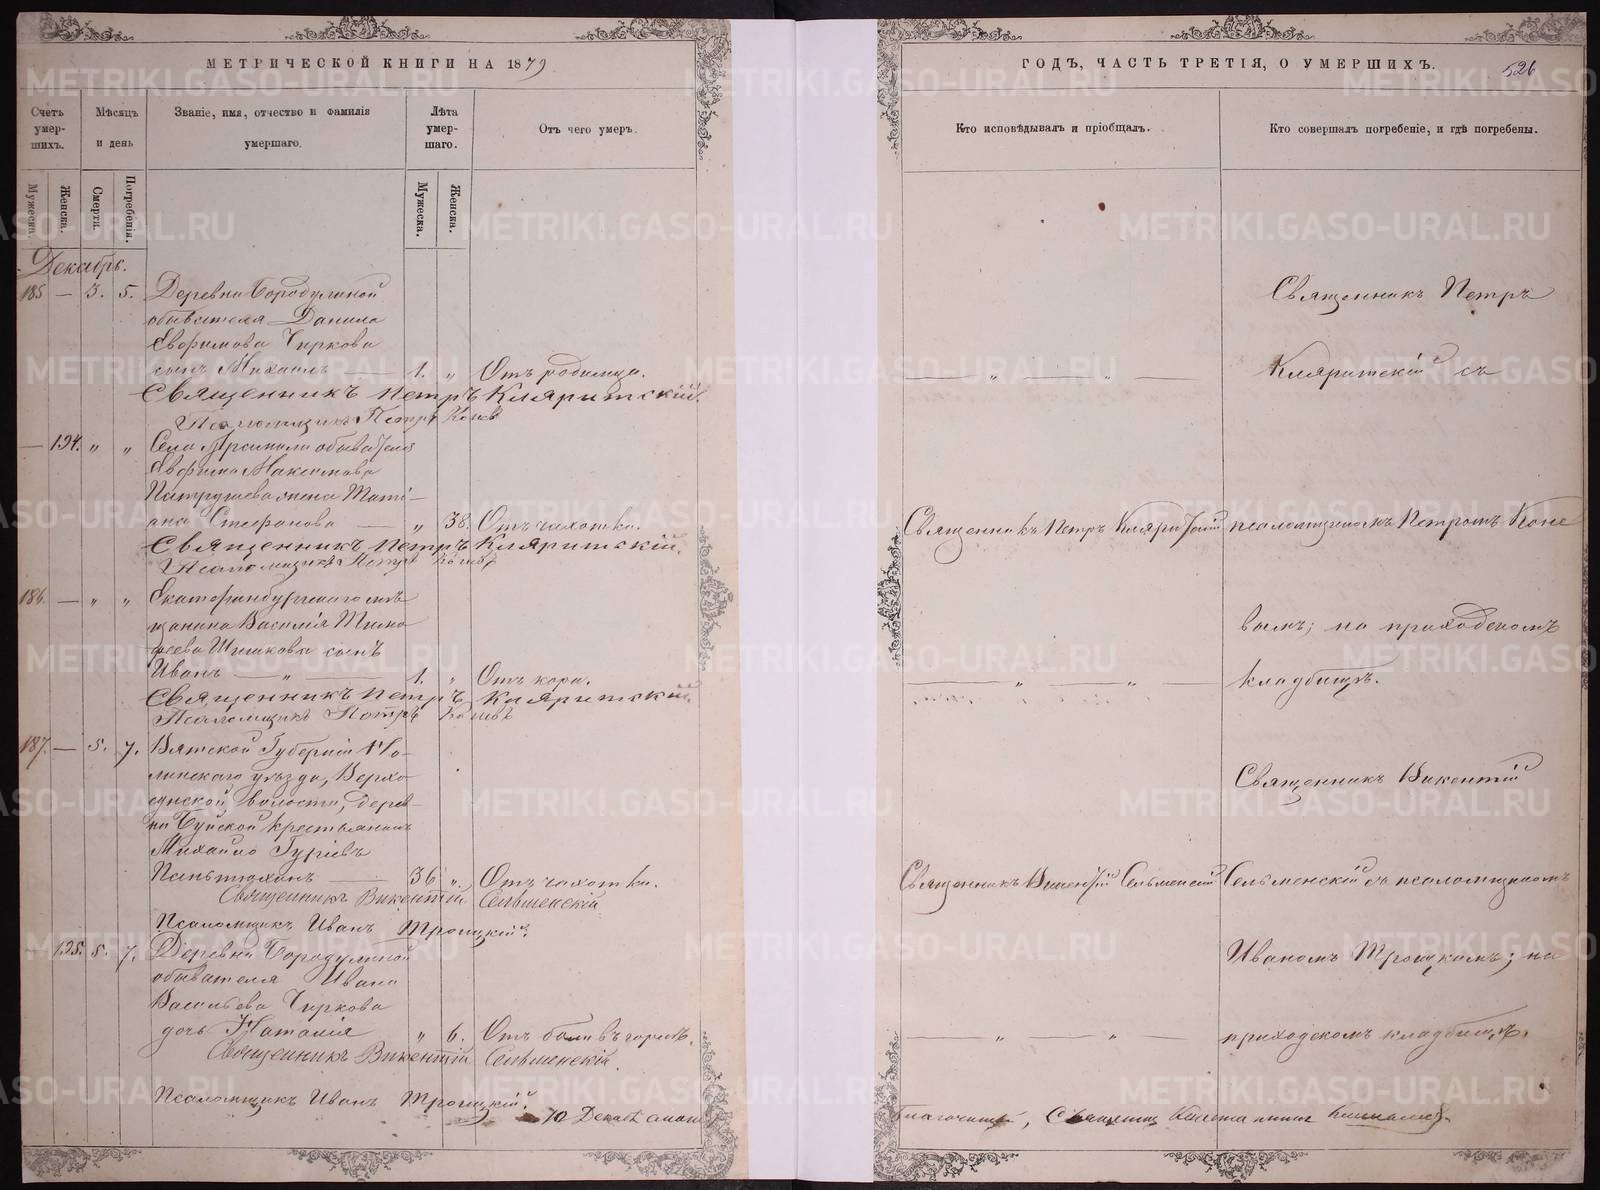 МЕТРИЧЕСКОЙ КНИГИ НА 1879
Счетъ умер-шихъ.
Мѣсяцъ и день
Званіе, имя, отчество и фамилія умершаго.
Лѣта умер-шаго.
Отъ чего умеръ.
Мужеска.
Женска.
Смерти.
Погребенія.
Мужеска.
Женска.
Декабрь.
185 — 3. 5. Деревни Бородулиной
обывателя Данила
Евфимова Чиркова
сынъ Михаилъ — 1. „ Отъ родимца.
Священникъ Петръ Кляритскій.
Псаломщикъ Петръ Коневъ
— 124. „ „ Села Арамили обывателя
Евфима Максимова
Патрушева жена Тати-
ана Стефанова — „ 38. Отъ чахотки.
Священникъ Петръ Кляритскій.
Псаломщикъ Петръ Коневъ
186. — „ „ Екатеринбургскаго мѣ-
щанина Василія Тимо
феева Шишкова сынъ
Иванъ — „ — 1. „ Отъ кори.
Священникъ Петръ Кляритскій
Псаломщикъ Петръ Коневъ
187. — 5. 7. Вятской Губерніи Но-
линскаго уѣзда, Верхо-
сунской волости, дерев-
ни Буйской крестьянинъ
Михайло Гуріевъ
Пантюхинъ — 36 „ Отъ чахотки.
Священникъ Викентій Сельменскій
Псаломщикъ Иванъ Троицкій.
— 125. 5. 7. Деревни Бородулиной
обывателя Ивана
Васильева Чиркова
дочь Наталія „ 6. Отъ боли въ горлѣ.
Священникъ Викентій Сельменскій.
Псаломщикъ Иванъ Троицкій.
ГОДЪ, ЧАСТЬ ТРЕТІЯ, О УМЕРШИХЪ.
526
Кто исповѣдывалъ и пріобщалъ.
Кто совершалъ погребеніе, и гдѣ погребены.
Священникъ Петръ
— „ — „ — Кляритскій съ
Священникъ Петръ Кляритскій псаломщикомъ Петромъ Коне
вымъ; на приходскомъ
— „ — „ — кладбищѣ.
Священникъ Викентій
Священникъ Викентій Сельменскій Сельменскій съ псаломщикомъ
Иваномъ Троицкимъ; на
— „ — „ — приходскомъ кладбищѣ.
METRIKI.GASO-URAL.RU